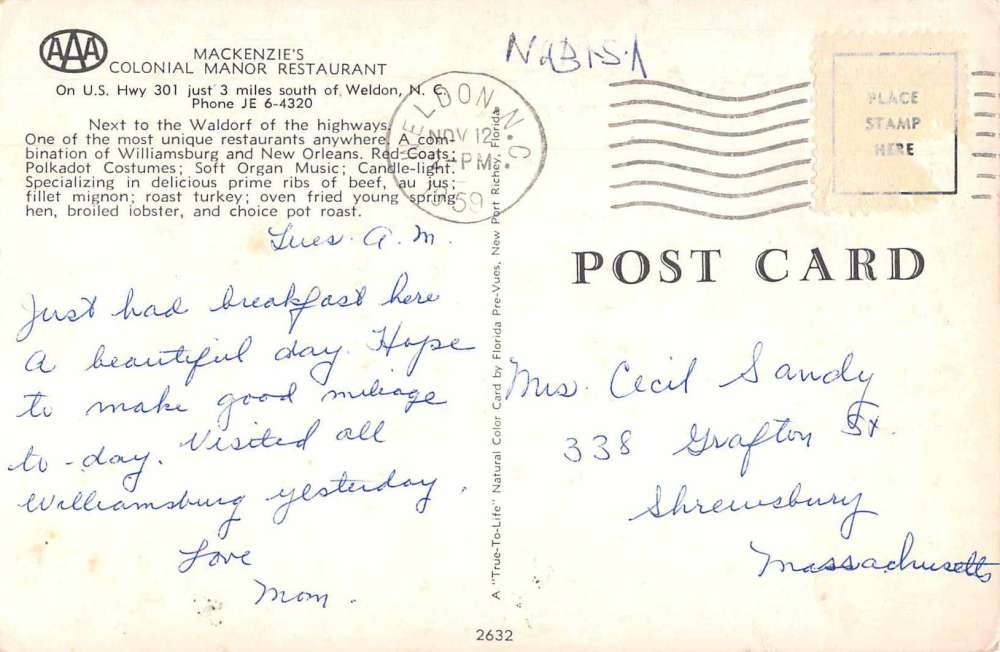 AAA
MACKENZIE'S
COLONIAL MANOR RESTAURANT
On U.S. Hwy 301 just 3 miles south of Weldon, N. C.
Phone JE 6-4320
Next to the Waldorf of the highways.
One of the most unique restaurants anywhere. A com-
bination of Williamsburg and New Orleans. Red-Coats;
Polkadot Costumes; Soft Organ Music; Candle-light.
Specializing in delicious prime ribs of beef, au jus;
fillet mignon; roast turkey; oven fried young spring
hen, broiled lobster, and choice pot roast.
Tues. A.M.
Just had breakfast here
A beautiful day. Hope
to make good mileage
to-day. Visited all
Williamsburg yesterday.
Love
Mom.
A "True-To-Life" Natural Color Card by Florida Pre-Vues, New Port Richey, Florida
2632
WELDON, N.C.
NOV 12
PM
1959
PLACE
STAMP
HERE
POST CARD
Mrs. Cecil Sandy
338 Grafton St.
Shrewsbury
Massachusetts